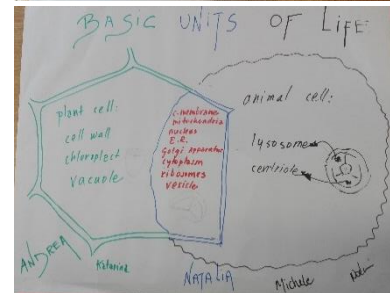 BASIC UNITS OF LiFE
plant cell:
cell wall
chloroplect
vacuole
c.membrane
mitochondria
nucleus
E.R.
Golgi apparatus
cytoplasm
ribosomes
vesicle
animal cell:
lysosome
centriole
ANDREA
Katarina
NATALIA
Michele